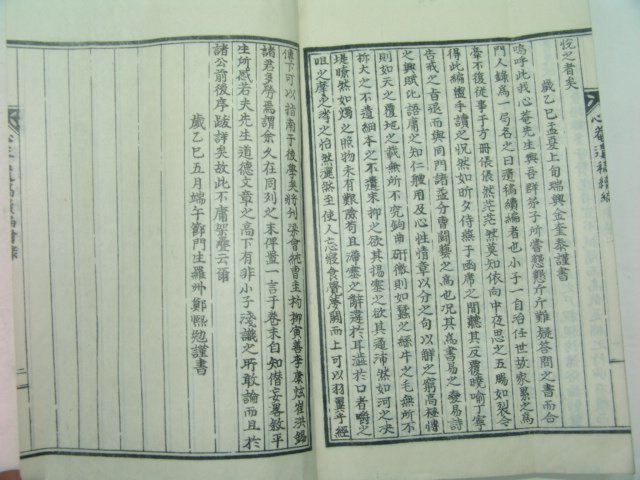 悅之者矣
歲乙巳孟夏上旬瑞興金奎泰謹書
嗚呼此我心菴先生與吾群弟子所嘗懇懇斤斤難疑答問之書而合
門人錄爲一局名之曰遺稿續編者也小子一自治任世故家累之爲
牽不復從事于方冊倀倀然茫茫然莫知依向中夜思之五腸如裂今
得此編擅手讀之怳然如昨夕侍燕于函席之間聽其反覆曉喻丁寧
告戒之旨退而與同門諸益分書鬪藝之爲也况其爲書易之變易詩
之興賦比語庸之知仁體用及心性情章以分之句以解之窮高極博
則如天之覆地之載無所不究鉤曲研微則如蠶之絲牛之毛無所不
拆大之不遺細本之不遺末抑之欲其揚塞之欲其通沛然如河之决
堤暸然如燭之照物未有艱險苟且滯塞之辭違於耳溢於口者嚼之
咀之摩之涔之怡然灑然至使人忘寢食費夢闢而上可以羽翼乎經
傳下可以指南于後學矣將刊梁會衎曺圭杓柳寅善李康炫崔洪錫
諸君多勞焉謂余久在同列之末俾置一言于卷末自知僭妄畧敍平
生所感若夫先生道德文章之高下有非小子淺識之所敢論而且於
諸公前後序跋詳矣故此不庸架疊云爾
歲乙巳五月端午節門生羅州鄭熙勉謹書
心菴遺稿續編